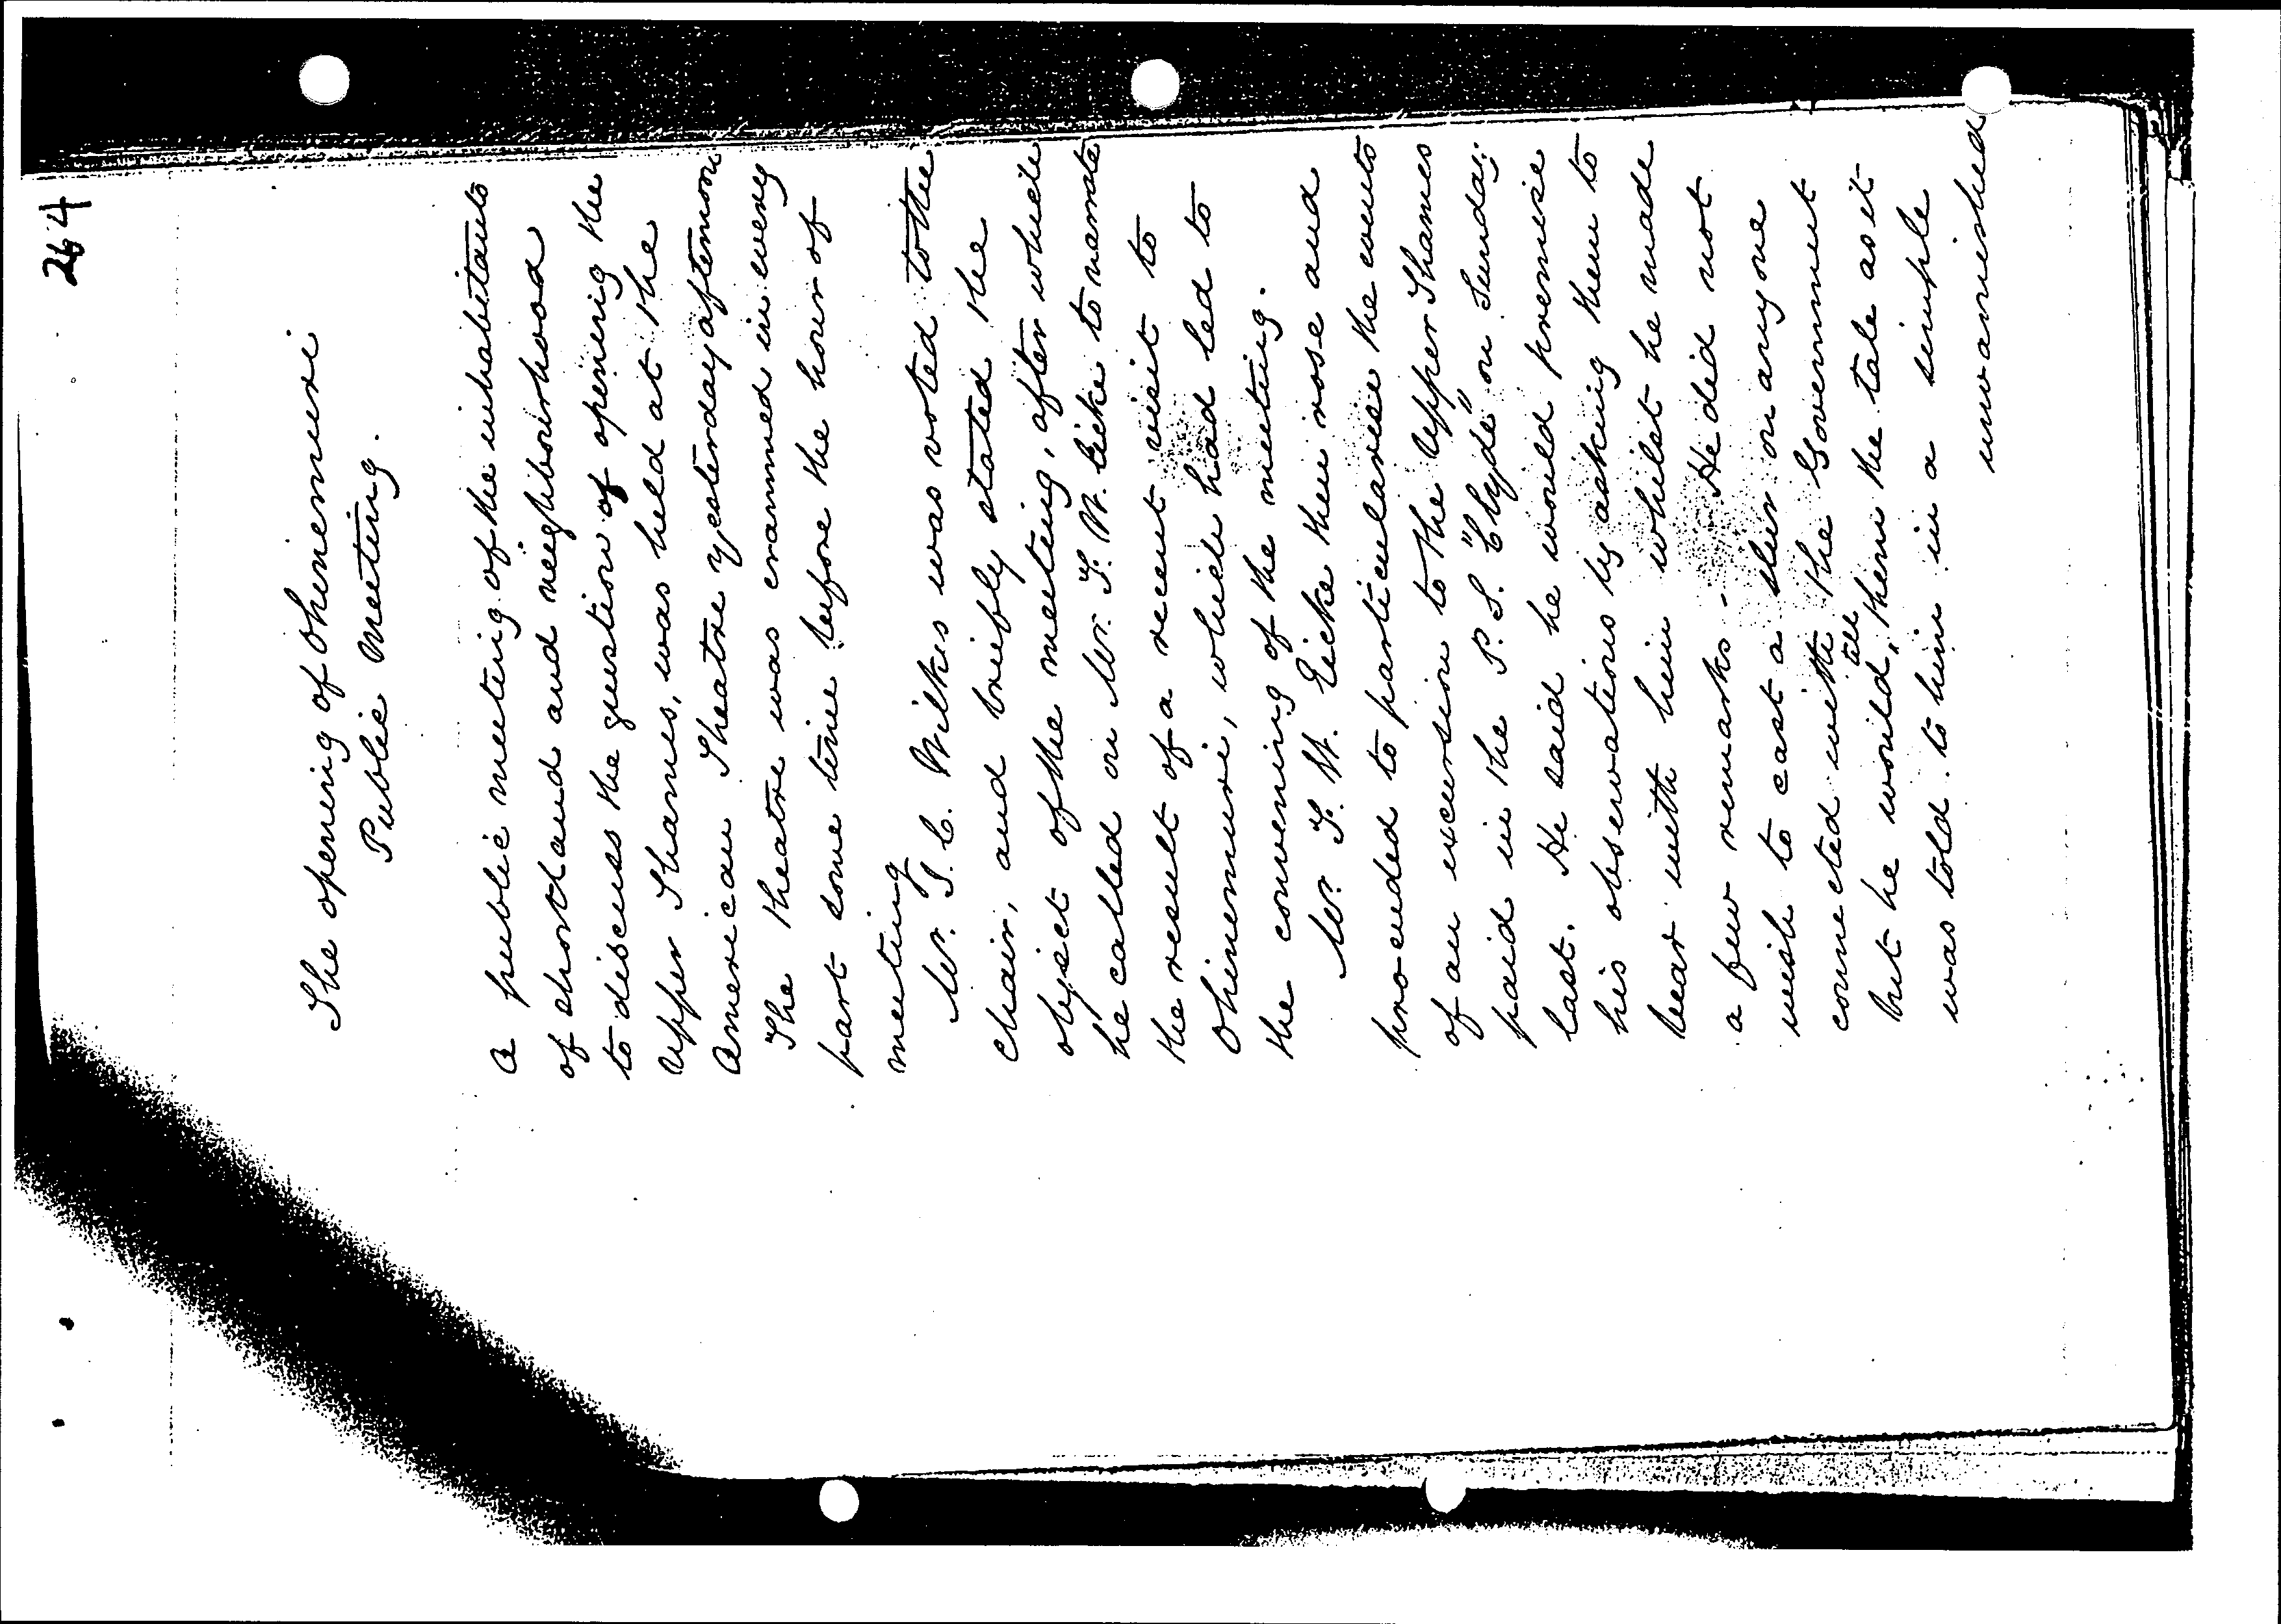 264
The opening of Ohinemuri
Public Meeting.
A public meeting of the inhabitants
of Shortland and neighbourhood
to discuss the question of opening the
Upper Thames, was held at the
American Theatre yesterday afternoon
The theatre was crammed in every
part some time before the hour of
meeting
Mr. J. C. Wilkes was voted to the
chair, and briefly stated the
object of the meeting, after which
he called on Mr. F. W. Eicke to narrate
the result of a recent visit to
Ohinemuri, which had led to
the convening of the meeting.
Mr. F. W. Eicke then rose and
proceeded to particularise the events
of an excursion to the Upper Thames
paid in the P. S. "Clyde" on Sunday
last. He said he would premise
his observations by asking them to
bear with him whilst he made
a few remarks - He did not
wish to cast a slur on any one
connected with the Government
but he would tell them the tale as it
was told to him in a simple
unvarnished